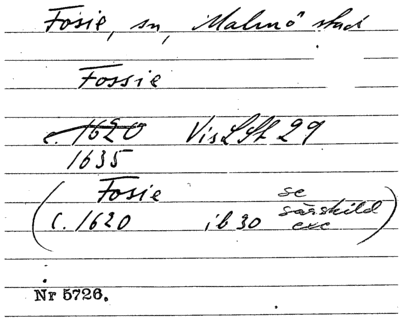 Fosie, sn, Malmö stad
Fossie
c. 1620 VisLSt 29
1635
(Fosie se
c. 1620 ib 30 särskild
exc)
Nr 5726.